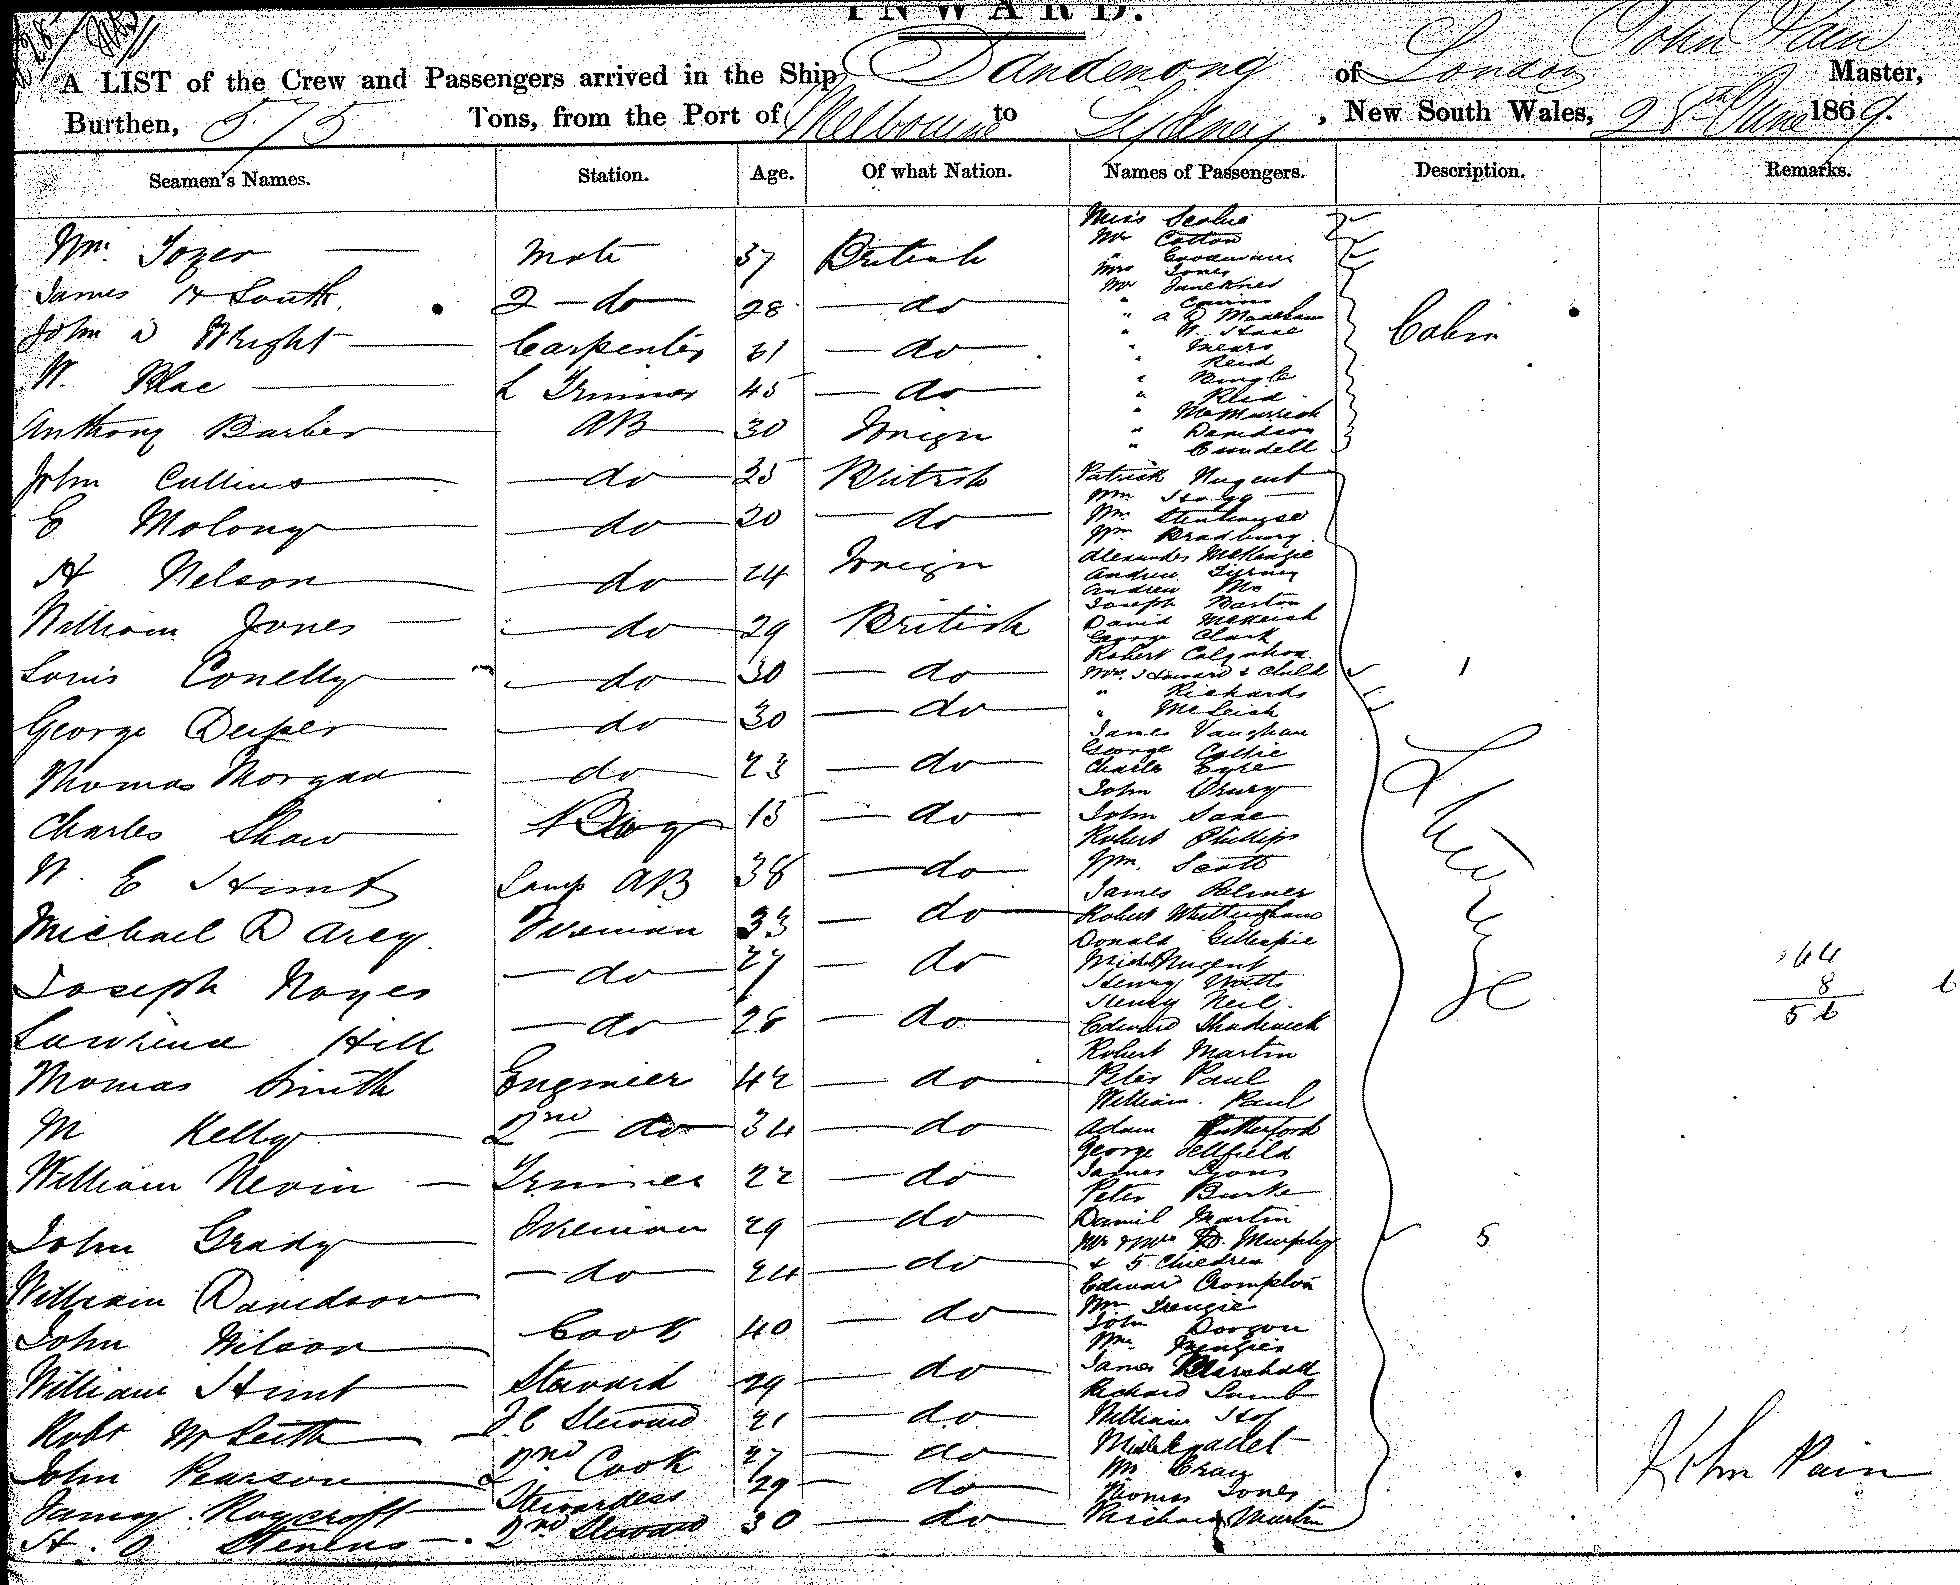 INWARD.
John Pain
A LIST of the Crew and Passengers arrived in the Ship Dandenong of London Master,
Burthen, 575 Tons, from the Port of Melbourne to Sydney, New South Wales, 28th June 1869.
Seamen's Names. Station. Age. Of what Nation. Names of Passengers. Description. Remarks.
Wm. Tozer Mate 37 British
James H South 2 - do 28 do
John D Wright Carpenter 31 do
W. Blac L Trimmer 45 do
Anthony Barber AB 30 Foreign
John Cullins do 25 British
E Molony do 20 do
A Nelson do 24 Foreign
William Jones do 29 British
Louis Conelly do 30 do
George Deuper do 30 do
Thomas Morgan do 23 do
Charles Shaw Boy 15 do
W. E Hunt Lamp AB 38 do
Michael D Arcy Fireman 33 do
Joseph Noyes do 27 do
Lawrence Hill do 28 do
Thomas Smith Engineer 42 do
M Kelly 2nd do 34 do
William Nevin Trimmer 22 do
John Grady Fireman 29 do
William Davidson do 24 do
John Wilson Cook 40 do
William Hunt Steward 29 do
Robt McLeith F.C Steward 21 do
John Pearson 2nd Cook 27 do
Fanny Roycroft Stewardess 29 do
H. O Stevens 2nd Steward 30 do
Miss Scobie
Mr Cotton
" Goodwin
Mrs Jones
Mr Faulkner
" Cousins
" A D
" W.
" Mears
" Reid
" Pringle
" Reid
" McMurrich
" Davidson
" Cundell
Cabin
Patrick Nugent
Wm Stagg
Wm. Stenhouse
Wm Bradbury
Alexander McKenzie
Andrew Tierney
Andrew Mc
Joseph Barton
David McLeish
George Clark
Robert Colquhon
Mrs. Howard & Child 1
" Richards
" McLeish
James Vaughan
George Collie
Charles Eyre
John Drury
John Lane
Robert Phillips
Wm. Scott
James Palmer
Robert Whittingham
Donald Gillespie
Michl Nugent
Henry Watts
Henry Neil
Edward Shadweck
Robert Martin
Peter Paul
William Paul
Adam Rutherford
George Oldfield
James Lyons
Peter Burke
Daniel Martin
Mr & Mrs D. Murphy
& 5 Children 5
Edward Crompton
Wm
John
Wm. Menzies
James Marshall
Richard Lamb
William
Mr Craig
Thomas Jones
Richard Martin
Steerage
64
8
56
John Pain